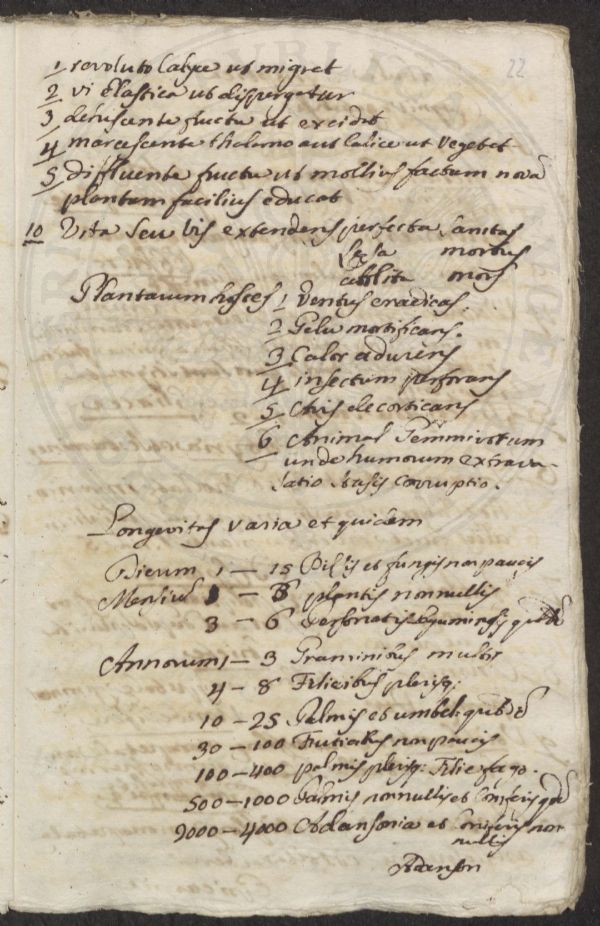 22
1 revoluto Calyce ut migret
2 vi Elastica ut dispergatur
3 dehiscente fructu ut excidat
4 marcescente thalamo aut Calice ut Vegetet
5 diffluente fructu ut mollius factum novā
plantam facilius educat
10 Vita Seu Vis extendens perfecta Sanitas
Læsa morbus
abolita mors
Plantarum hostes 1 Ventus eradicas.
2 Gelu mortificans.
3 Calor adurens
4 insectum perforans
5 Avis decorticans
6 Animal Gemmivorum
unde humorum extrava-
satio Stasis Corruptio.
Longevitas Varia et quidem
Dierum 1 – 15 et fungis non paucis
Mensium 1 – 8 plantis nonnullis
3 – 6
Annorum 1 – 3 Graminibus multis
4 – 8 Filicibus plerisq:
10 – 25 Palmis et umbel:
30 – 100 Fruticibus non paucis
100 – 400 palmis plerisq: Filic fago.
500 – 1000 Palmis nonnullis et Coniferis
2000 – 4000 Adansonia et Coniferis non
nullis
Adanson